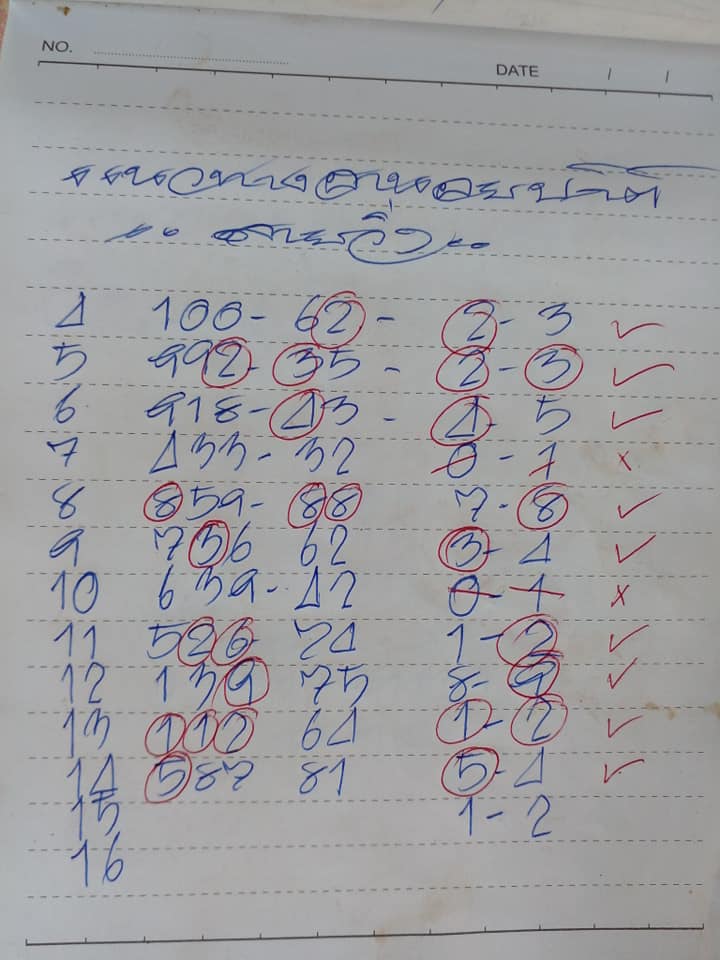 NO.
DATE / /
แนวทางฮานอยปกติ
4 100 - 62 - 2 - 3 ✓
5 992 - 35 - 2 - 3 ✓
6 918 - 43 - 4 - 5 ✓
7 433 - 32 0 - 1 x
8 859 - 88 7 - 8 ✓
9 736 62 3 - 4 ✓
10 639 - 42 0 - 1 x
11 526 74 1 - 2 ✓
12 139 75 8 - 9 ✓
13 112 64 1 - 2 ✓
14 587 81 5 - 4 ✓
15 1 - 2
16